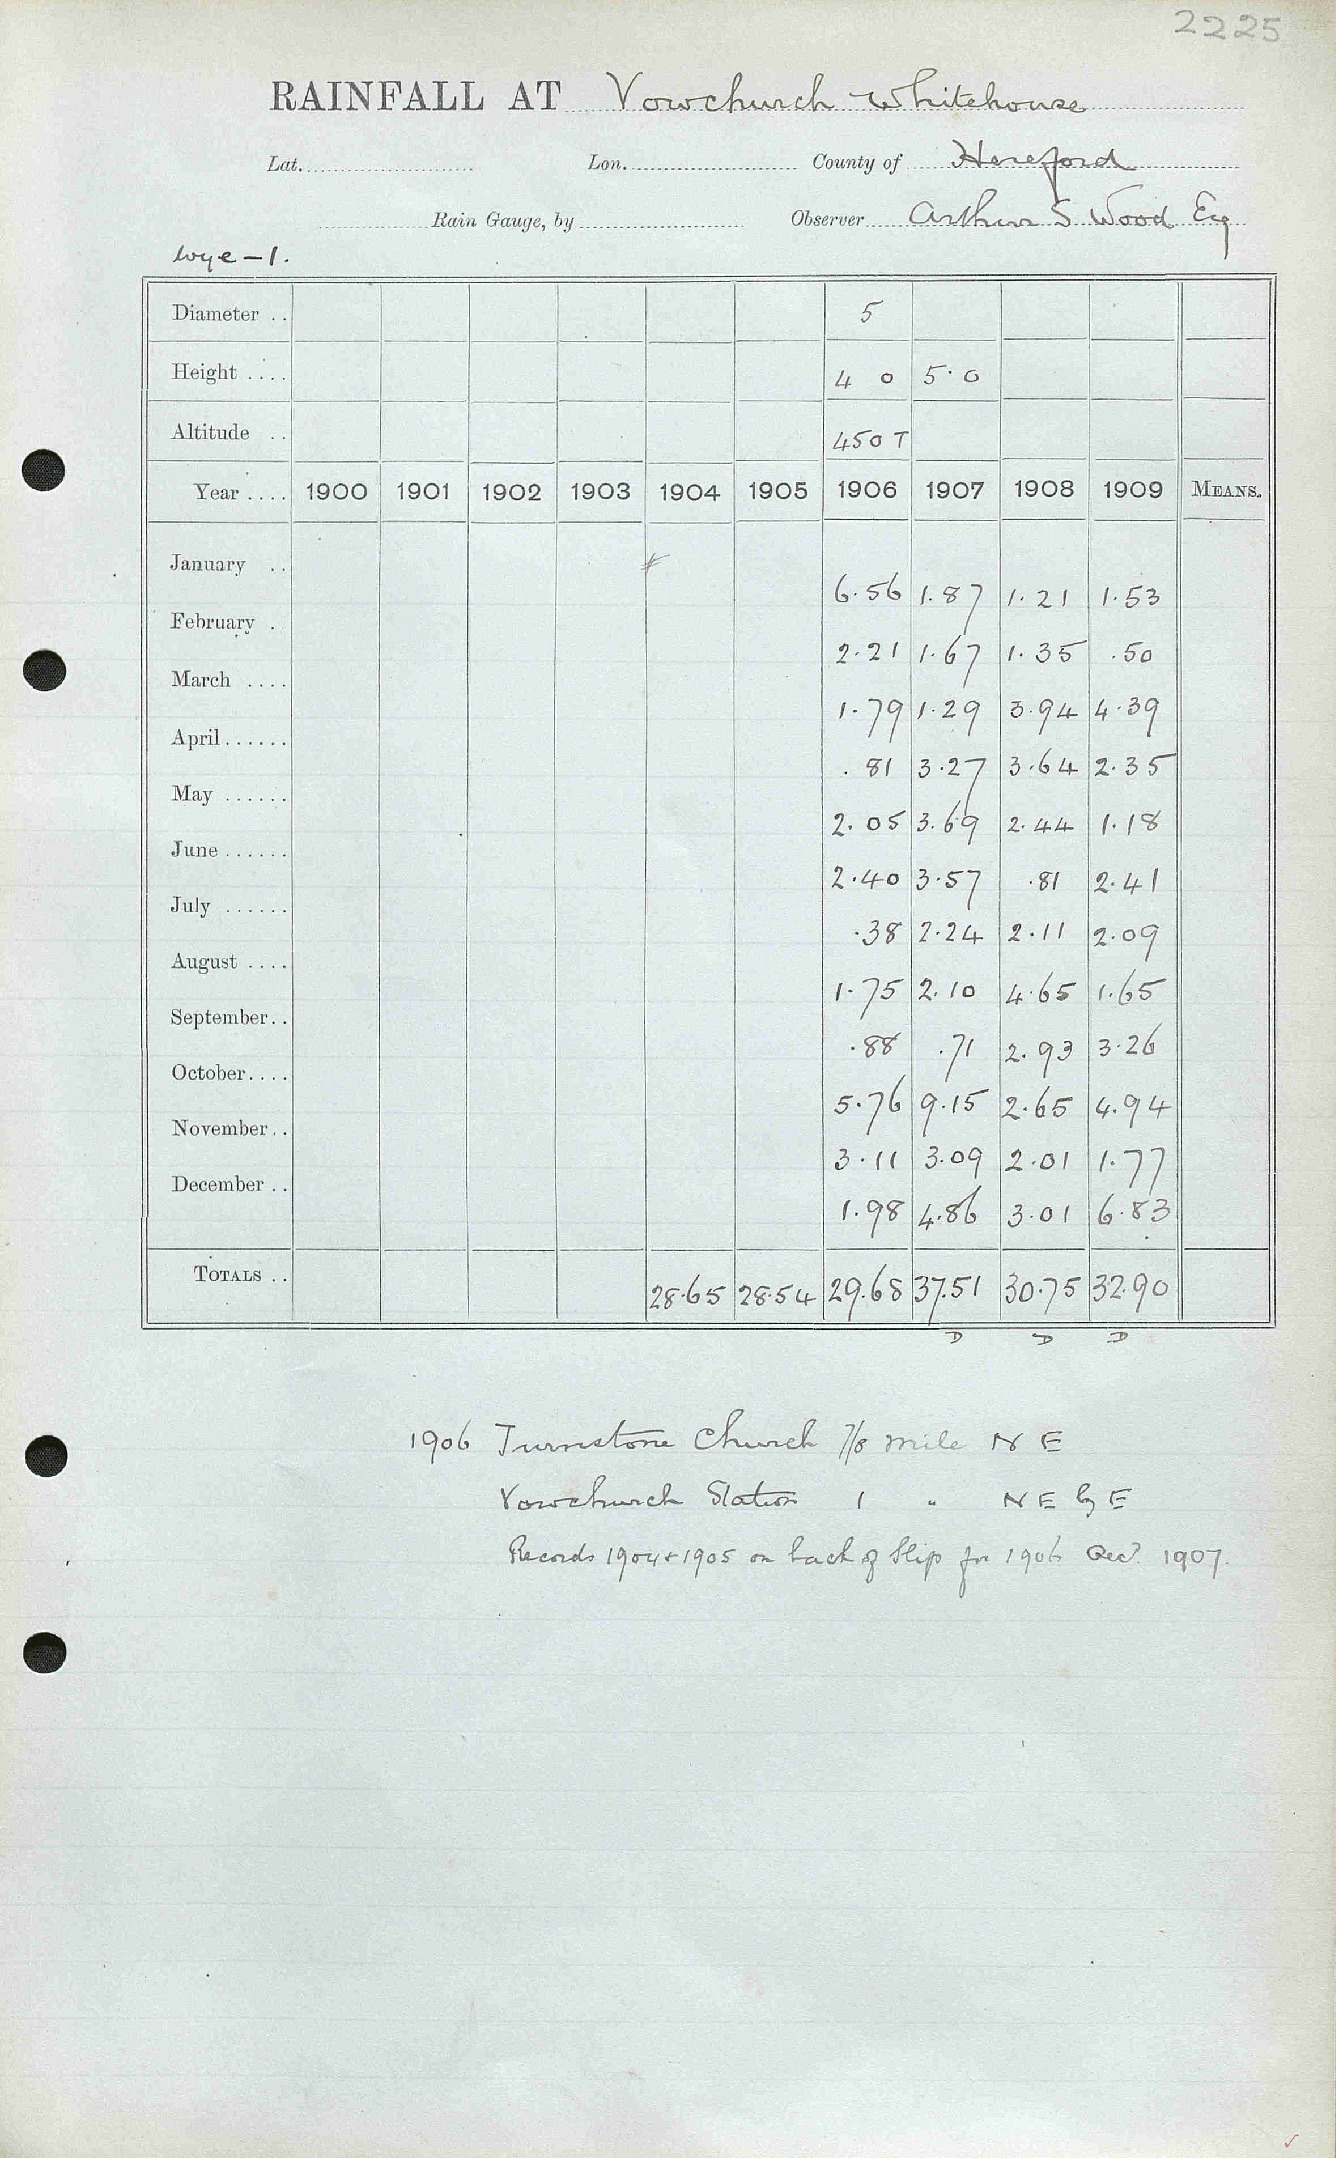 2225
RAINFALL AT Vowchurch Whitehouse
Lat. Lon. County of Hereford
Rain Gauge, by Observer Arthur S Wood Esq
Wye – 1.
Diameter .. 5
Height .... 4 0 5.0
Altitude .. 450 T
Year .... 1900 1901 1902 1903 1904 1905 1906 1907 1908 1909 MEANS.
January .. 6.56 1.87 1.21 1.53
February . 2.21 1.67 1.35 .50
March .... 1.79 1.29 3.94 4.39
April...... .81 3.27 3.64 2.35
May ...... 2.05 3.69 2.44 1.18
June ...... 2.40 3.57 .81 2.41
July ...... .38 2.24 2.11 2.09
August .... 1.75 2.10 4.65 1.65
September.. .88 .71 2.93 3.26
October.... 5.76 9.15 2.65 4.94
November.. 3.11 3.09 2.01 1.77
December .. 1.98 4.86 3.01 6.83
TOTALS .. 28.65 28.54 29.68 37.51 30.75 32.90
D D D
1906 Turnstone Church 7/8 mile N E
Vowchurch Station 1 " N E by E
Records 1904 + 1905 on back of slip for 1906 Recd. 1907.